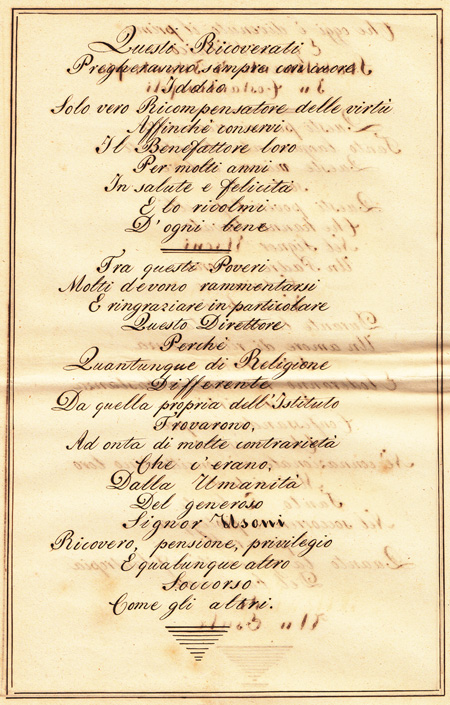 Questi Ricoverati
Pregheranno sempre con amore
Iddio
Solo vero Ricompensatore delle virtù
Affinchè conservi
Il Benefattore loro
Per molti anni
In salute e felicità
E lo ricolmi
D'ogni bene
Tra questi Poveri
Molti devono rammentarsi
E ringraziare in particolare
Questo Direttore
Perchè
Quantunque di Religione
Differente
Da quella propria dell'Istituto
Trovarono,
Ad onta di molte contrarietà
Che c'erano,
Dalla Umanità
Del generoso
Signor Usoni
Ricovero, pensione, privilegio
E qualunque altro
Soccorso
Come gli altri.